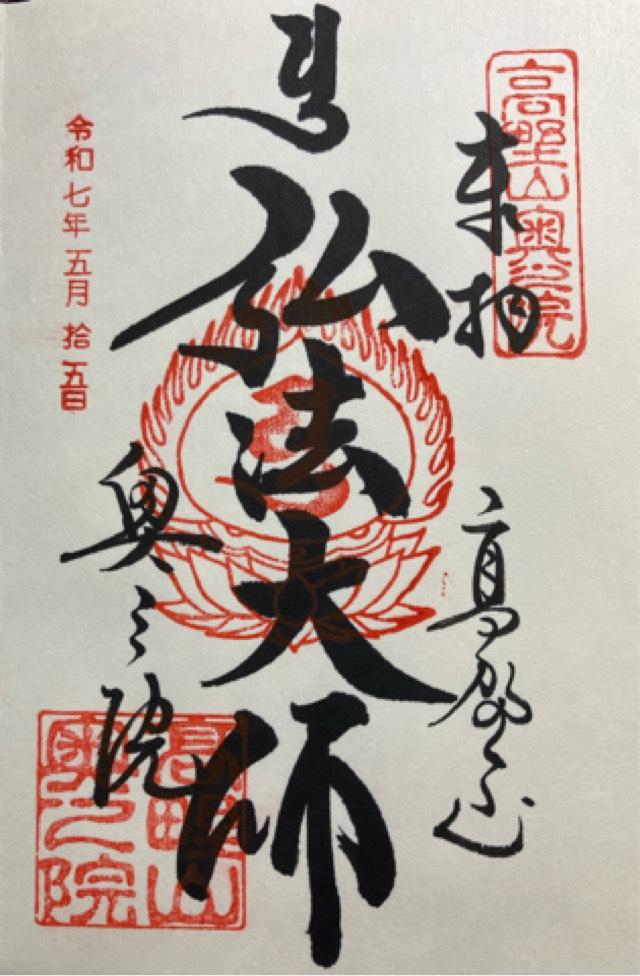 高野山奥之院
奉拝
高野山
弘法大師
奥之院
令和七年五月拾五日
高野山
奥之院